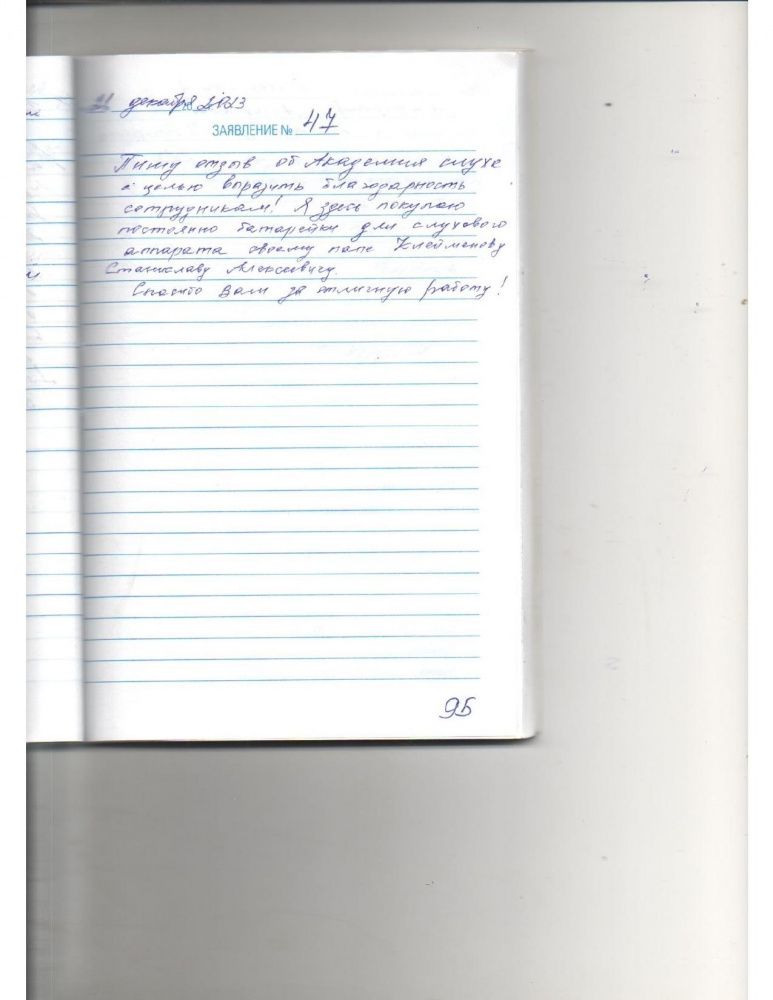 декабря 2013
ЗАЯВЛЕНИЕ № 47
Пишу отзыв об Академия слуха
с целью выразить благодарность
сотрудникам! Я здесь покупаю
постоянно батарейки для слухового
аппарата своему папе Клейменову
Станиславу Алексеевичу.
Спасибо Вам за отличную работу!
95